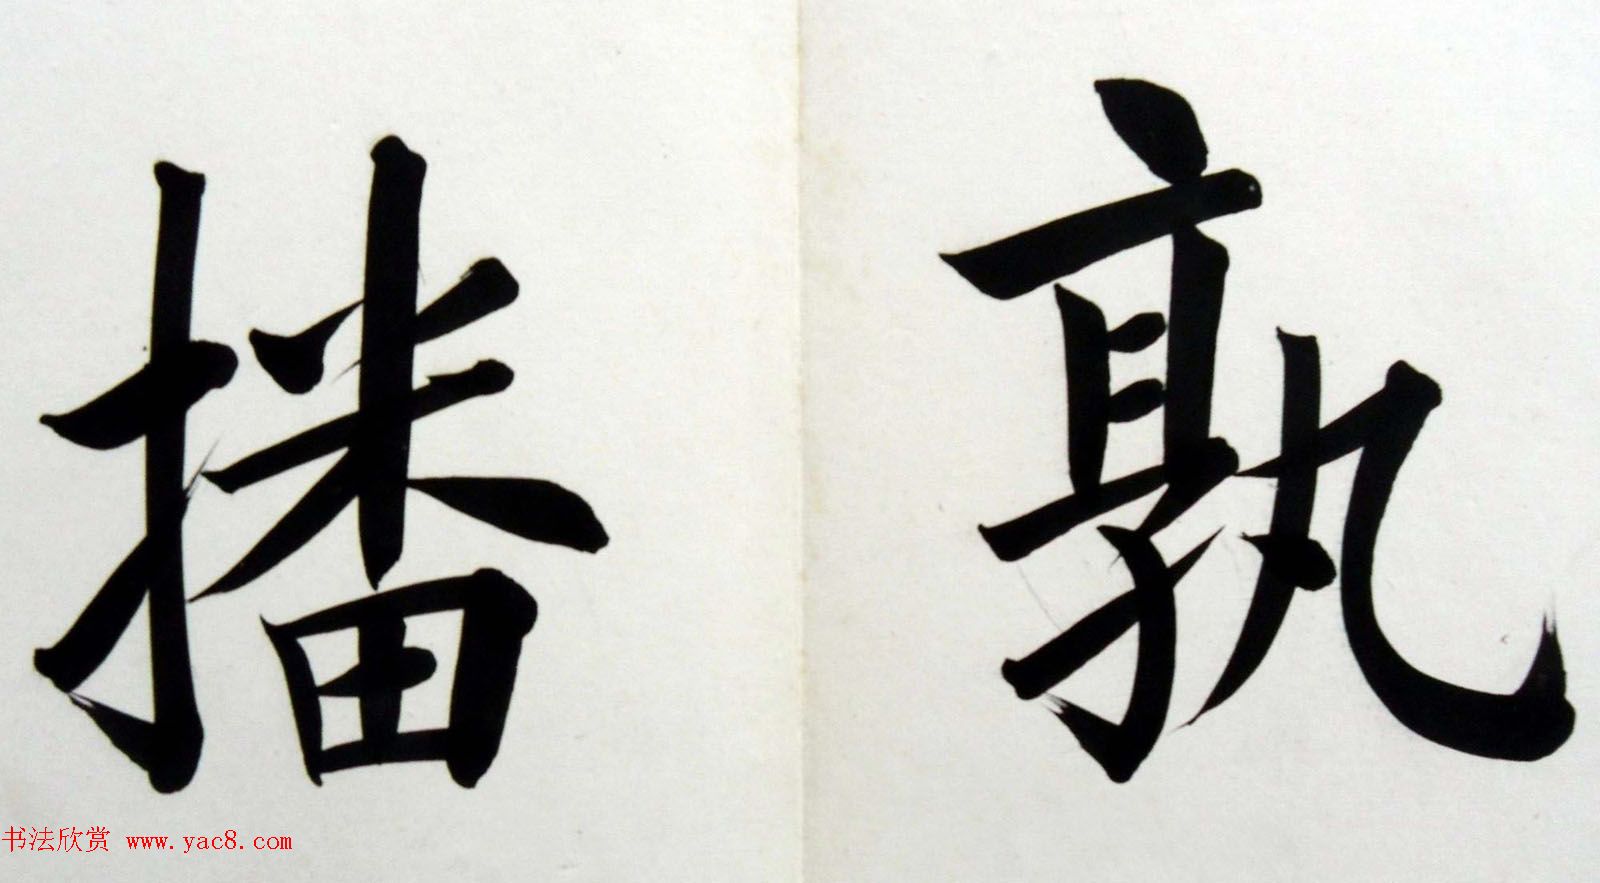 孰
播
书法欣赏 www.yac8.com